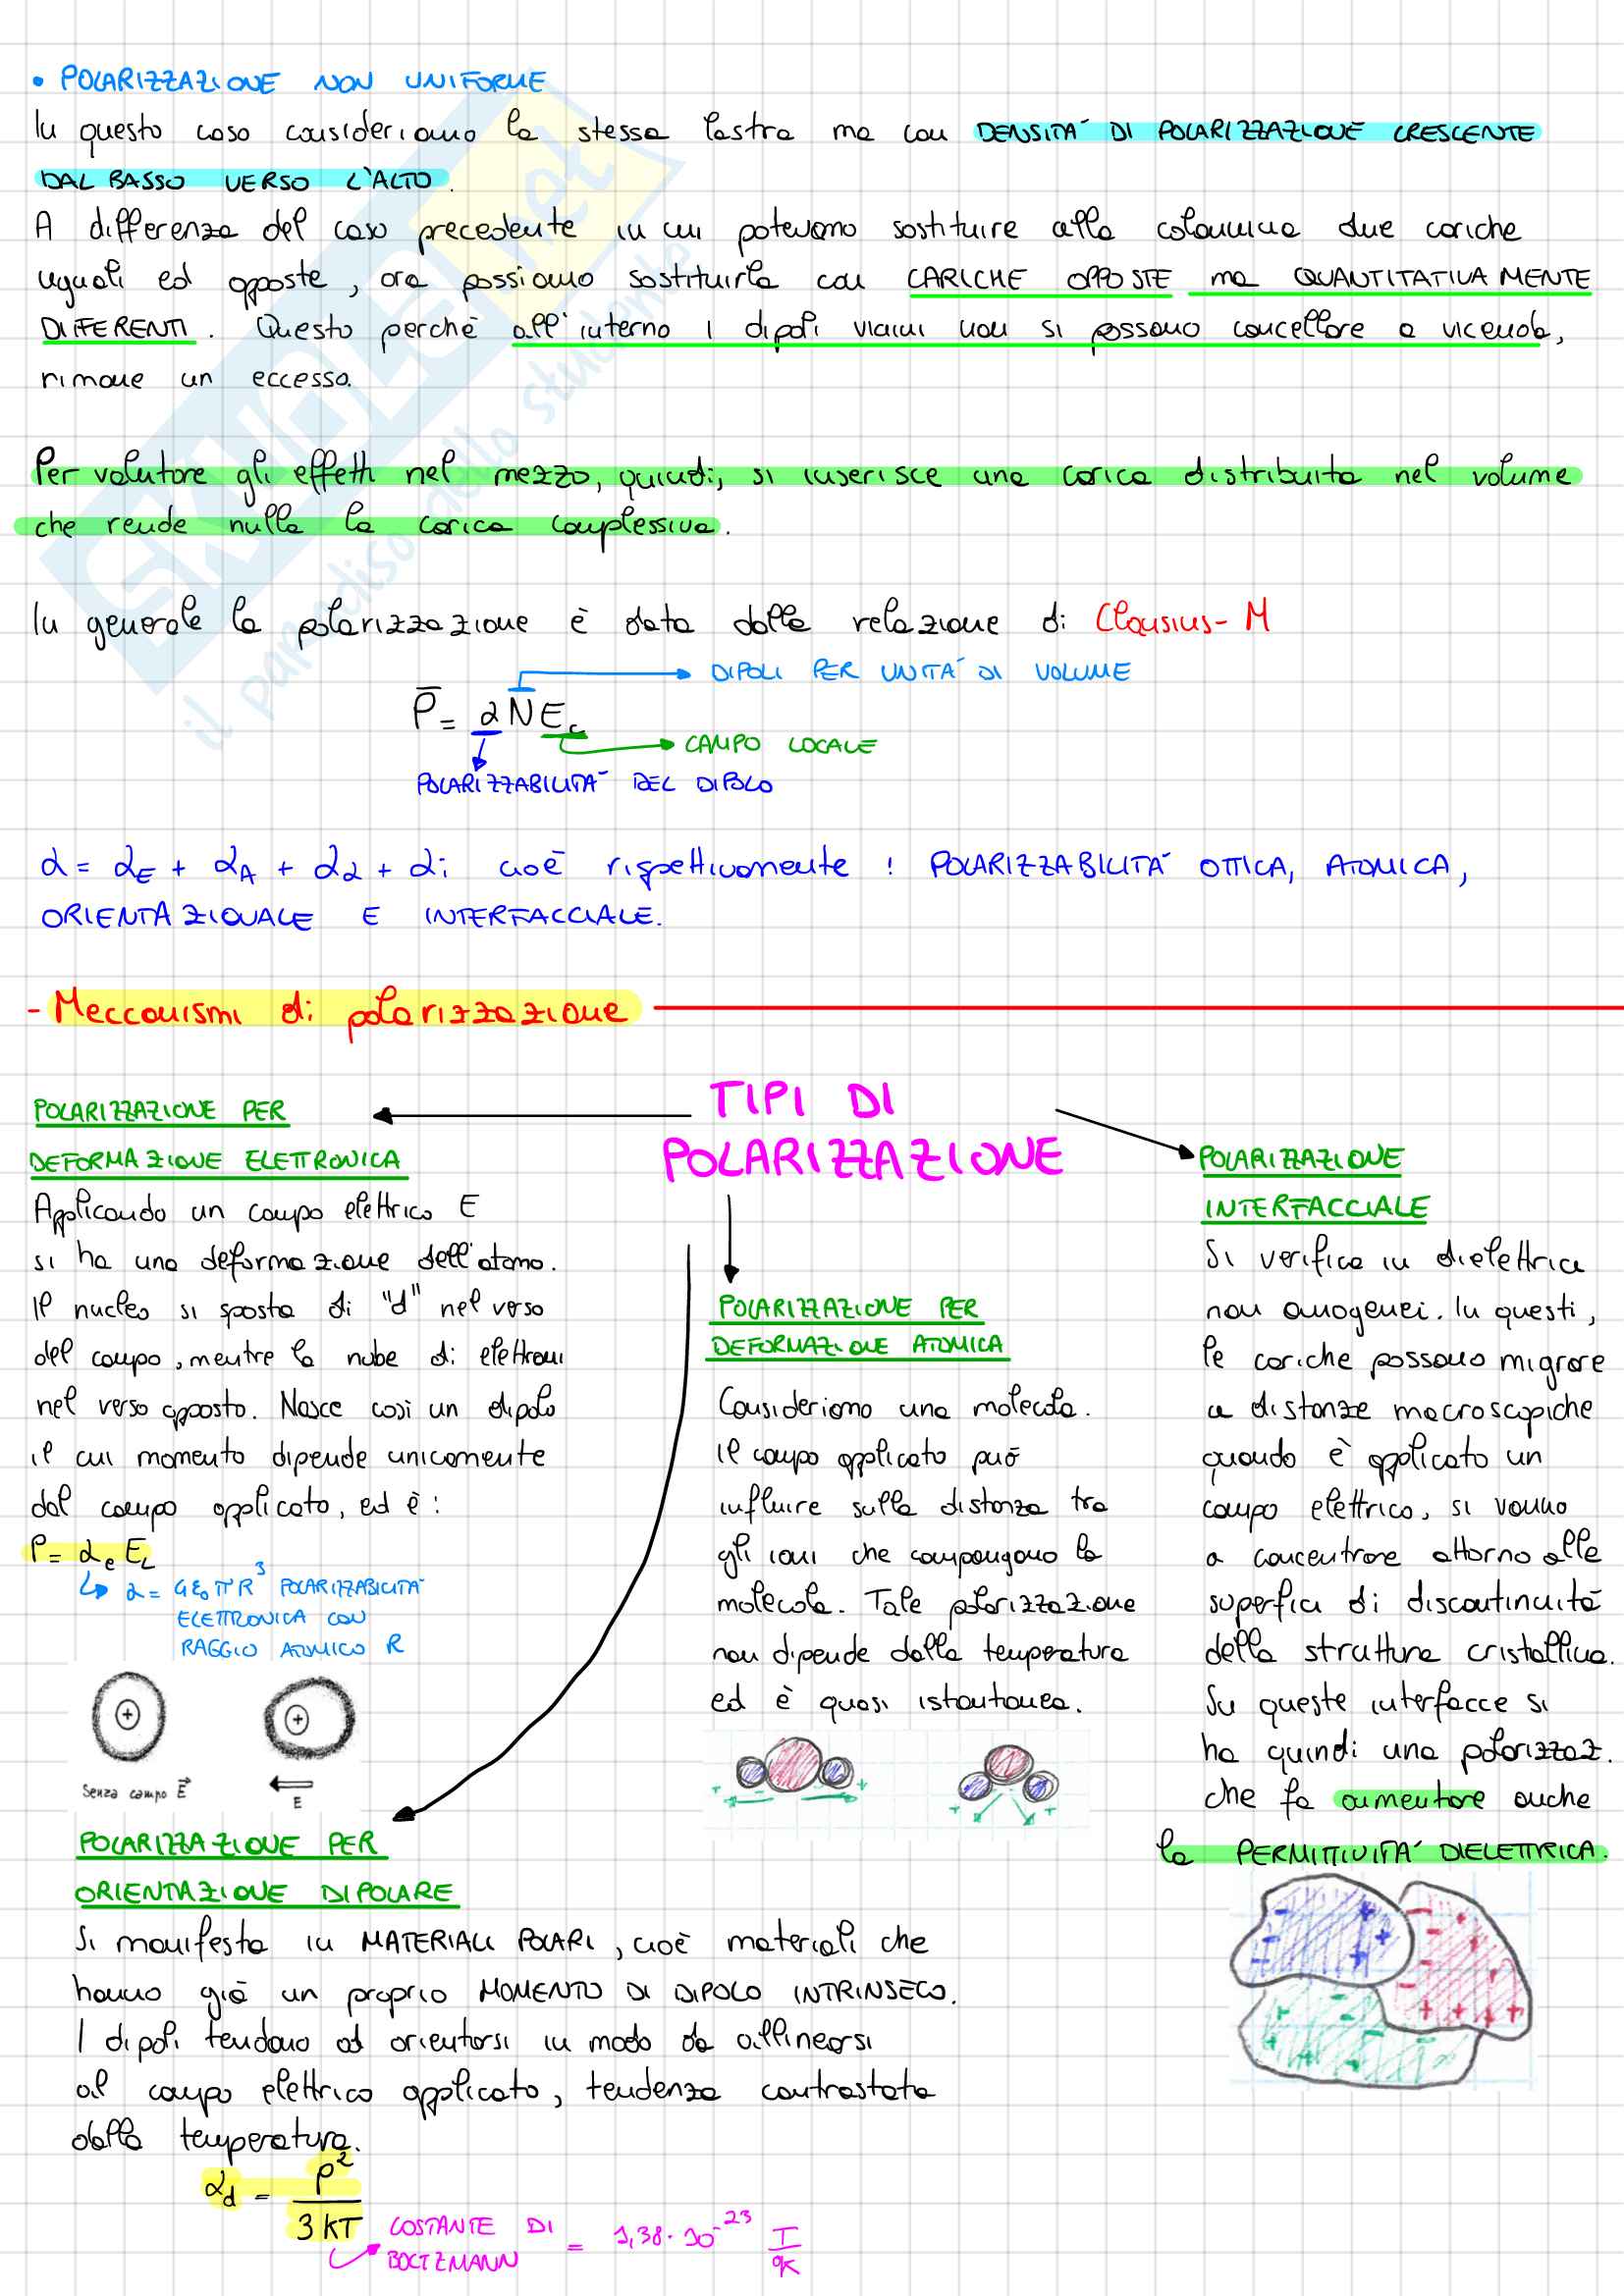 • POLARIZZAZIONE NON UNIFORME
In questo caso consideriamo la stessa lastra ma con DENSITA' DI POLARIZZAZIONE CRESCENTE
DAL BASSO VERSO L'ALTO.
A differenza del caso precedente in cui potevamo sostituire alla colonnina due cariche
uguali ed opposte, ora possiamo sostituirla con CARICHE OPPOSTE ma QUANTITATIVAMENTE
DIFERENTI. Questo perchè all'interno i dipoli vicini non si possono cancellare a vicenda,
rimane un eccesso.
Per valutare gli effetti nel mezzo, quindi, si inserisce una carica distribuita nel volume
che rende nulla la carica complessiva.
In generale la polarizzazione è data dalla relazione di Clausius-M
DIPOLI PER UNITA' DI VOLUME
P̄ = αNE_L
CAMPO LOCALE
POLARIZZABILITA' DEL DIPOLO
α = α_E + α_A + α_d + α_i cioè rispettivamente: POLARIZZABILITA' OTTICA, ATOMICA,
ORIENTAZIONALE E INTERFACCIALE.
- Meccanismi di polarizzazione
TIPI DI
POLARIZZAZIONE
POLARIZZAZIONE PER
DEFORMAZIONE ELETTRONICA
Applicando un campo elettrico E
si ha una deformazione dell'atomo.
Il nucleo si sposta di "d" nel verso
del campo, mentre la nube di elettroni
nel verso opposto. Nasce così un dipolo
il cui momento dipende unicamente
dal campo applicato, ed è:
P = α_e E_L
α = 4ε₀πR³ POLARIZZABILITA'
ELETTRONICA CON
RAGGIO ATOMICO R
+ +
Senza campo E⃗
E
POLARIZZAZIONE PER
DEFORMAZIONE ATOMICA
Consideriamo una molecola.
Il campo applicato può
influire sulla distanza tra
gli ioni che compongono la
molecola. Tale polarizzazione
non dipende dalla temperatura
ed è quasi istantanea.
+ + + +
POLARIZZAZIONE
INTERFACCIALE
Si verifica in dielettrici
non omogenei. In questi,
le cariche possono migrare
a distanze macroscopiche
quando è applicato un
campo elettrico, si vanno
a concentrare attorno alle
superfici di discontinuità
della struttura cristallina.
Su queste interfacce si
ha quindi una polarizzaz.
che fa aumentare anche
la PERMITTIVITA' DIELETTRICA.
POLARIZZAZIONE PER
ORIENTAZIONE DIPOLARE
Si manifesta in MATERIALI POLARI, cioè materiali che
hanno già un proprio MOMENTO DI DIPOLO INTRINSECO.
I dipoli tendono ad orientarsi in modo da allinearsi
al campo elettrico applicato, tendenza contrastata
dalla temperatura.
α_d = P² / 3KT
COSTANTE DI
BOLTZMANN = 1,38·10⁻²³ J/°K
SKUOLA.net
il paradiso dello studente